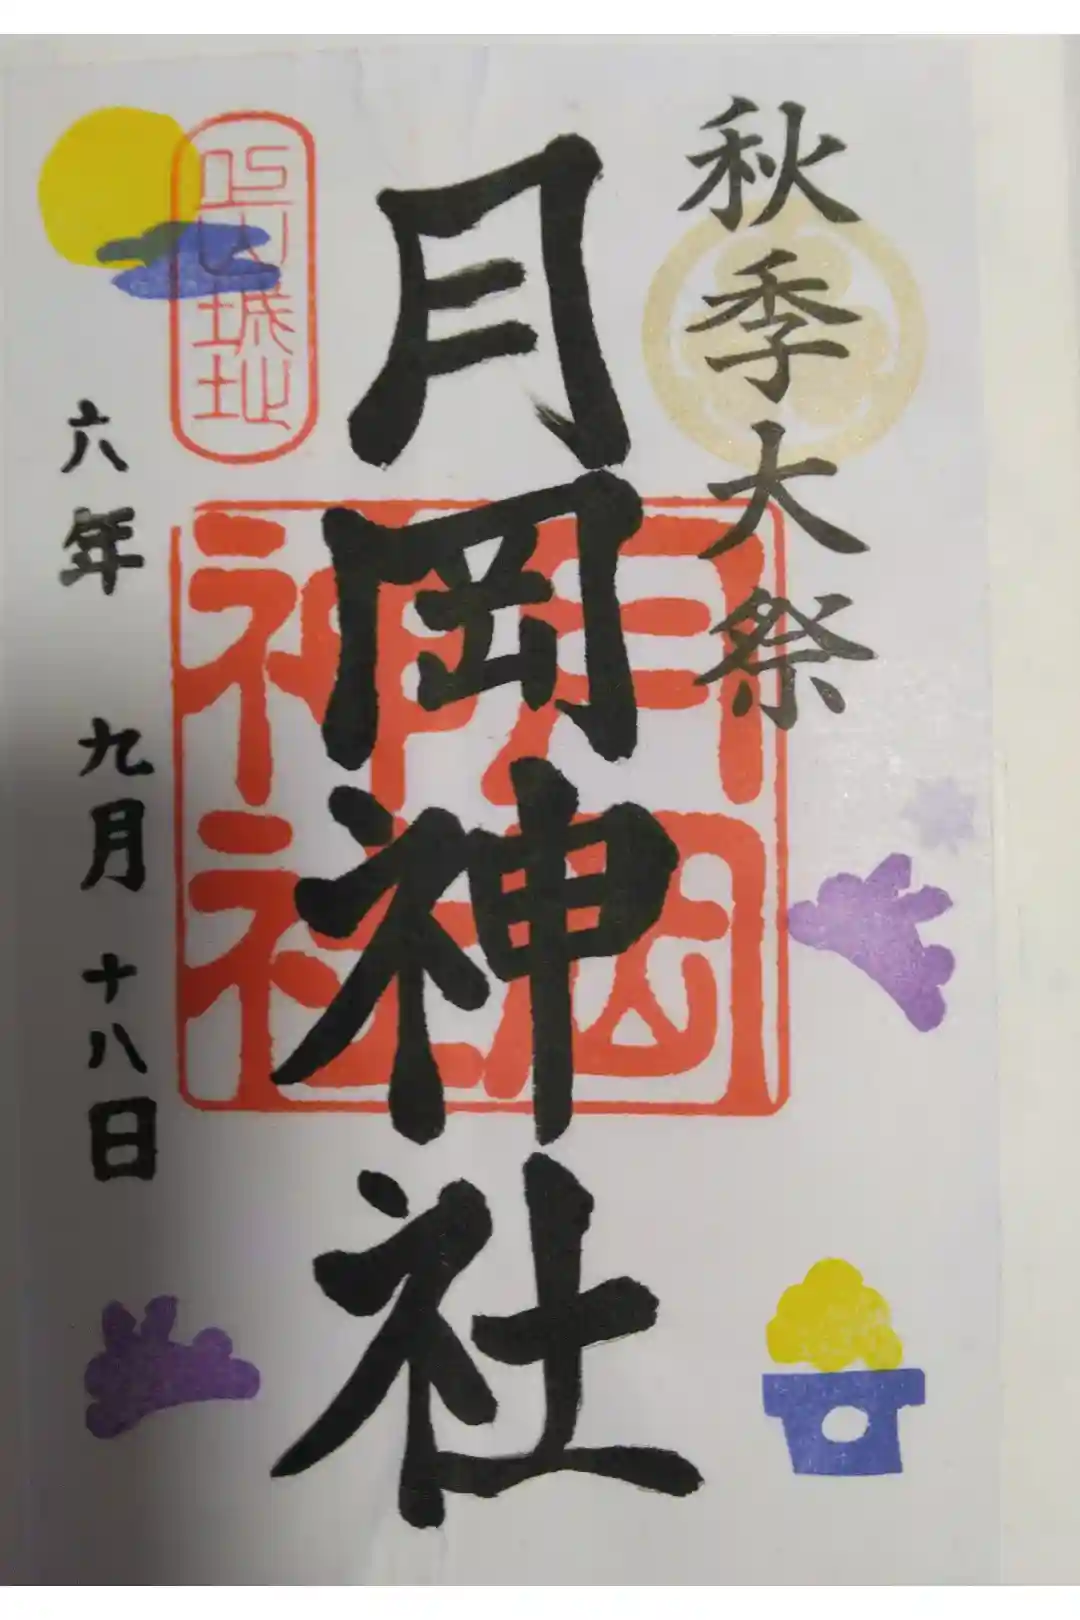 秋季大祭
月岡神社
月岡
神社
上山城址
六年 九月十八日